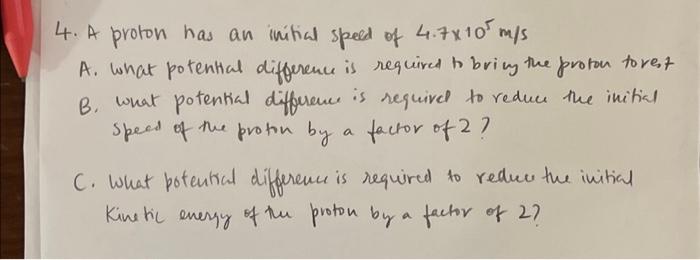 4. A proton has an initial speed of 4.7x10⁵ m/s
A. What potential difference is required to bring the proton to rest
B. What potential difference is required to reduce the initial
speed of the proton by a factor of 2?
C. What potential difference is required to reduce the initial
Kinetic energy of the proton by a factor of 2?